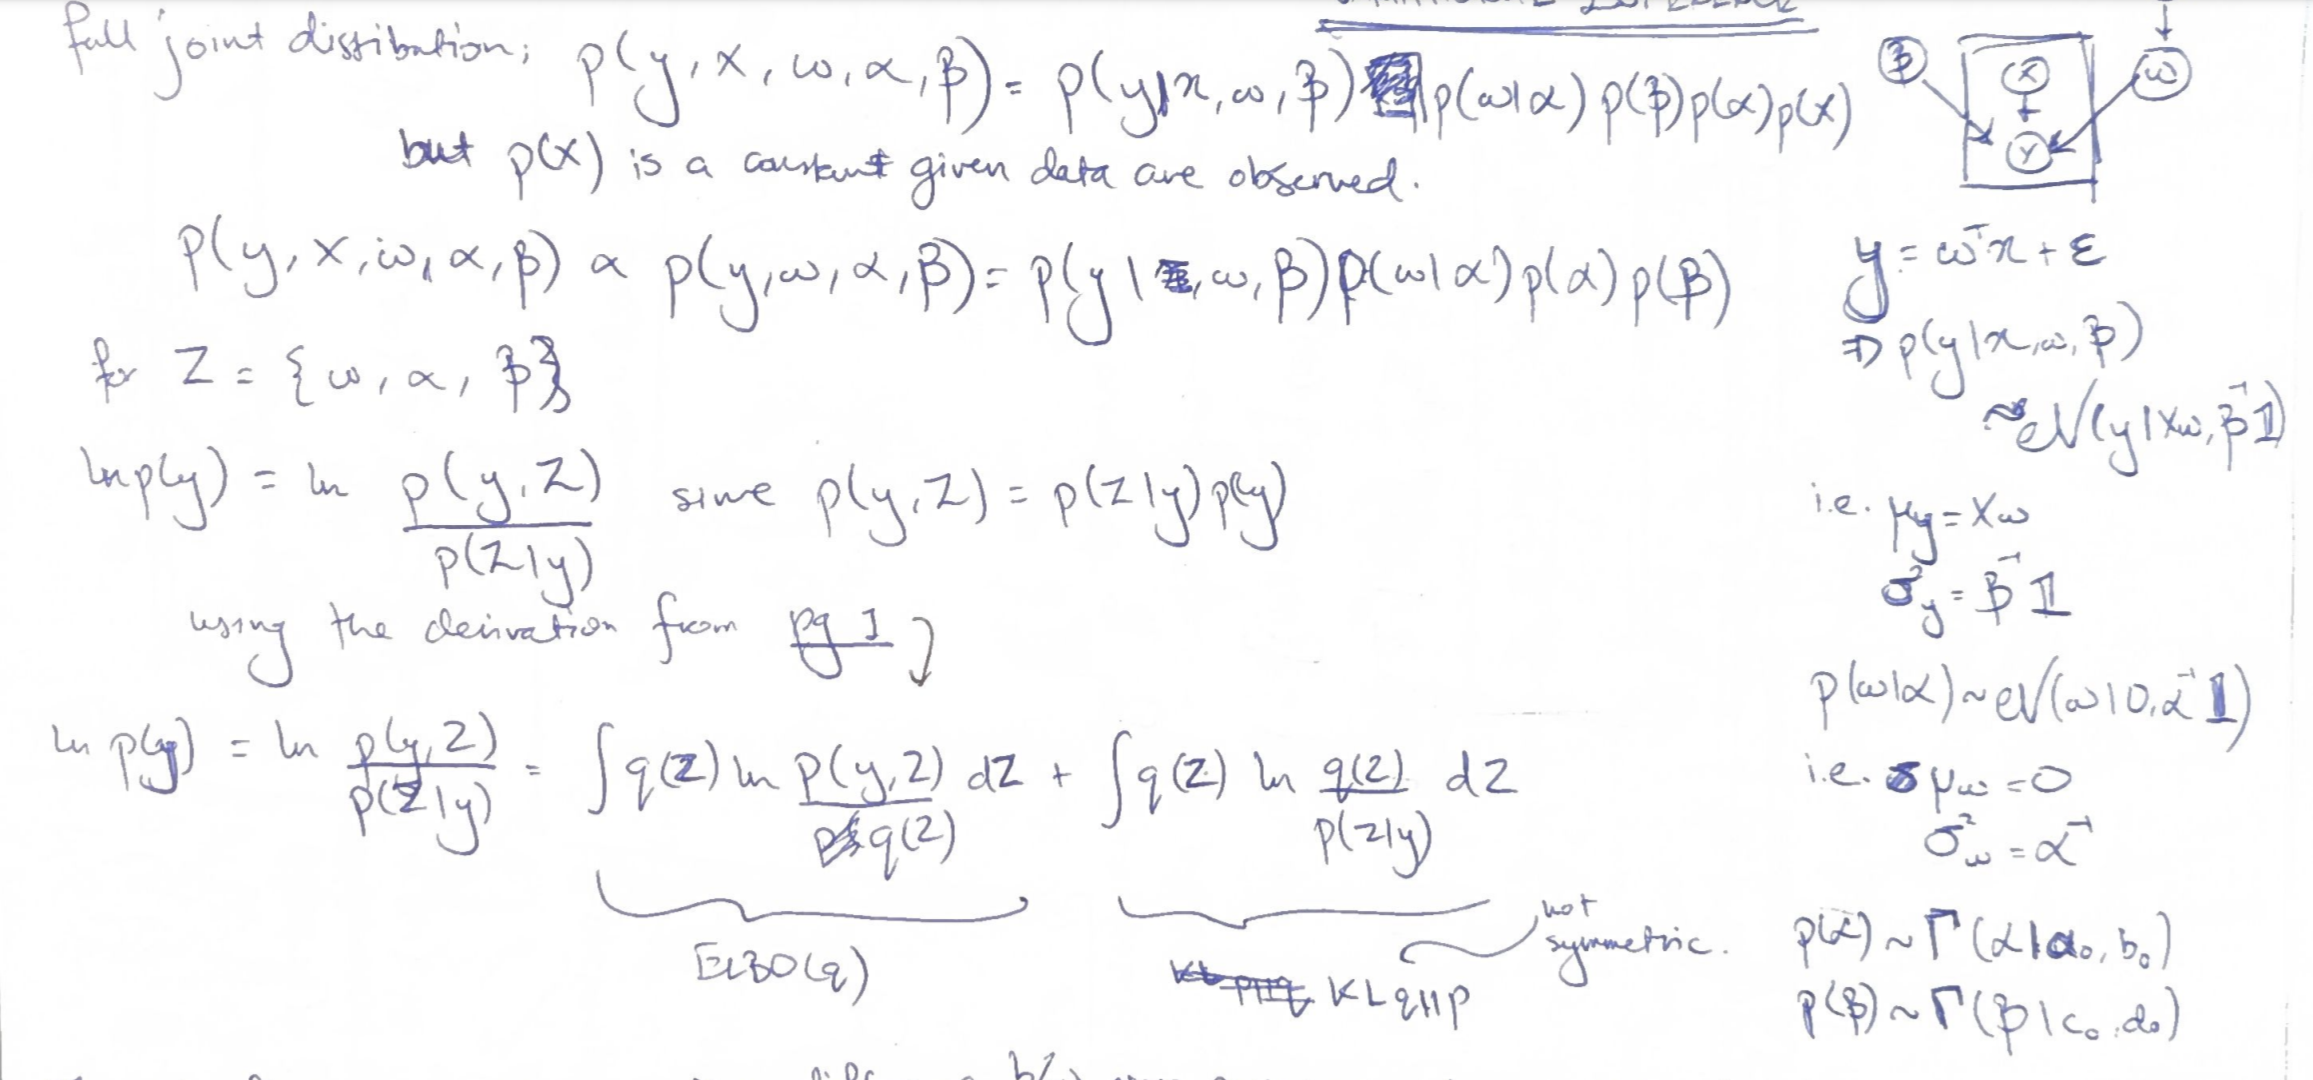 VARIATIONAL INFERENCE
full joint distribution; p(y, x, ω, α, β) = p(y|x, ω, β) p(ω|α) p(β) p(α) p(x)
but p(x) is a constant given data are observed.
p(y, x, ω, α, β) α p(y, ω, α, β) = p(y | , ω, β) p(ω|α) p(α) p(β)
for Z = {ω, α, β}
ln p(y) = ln p(y, Z) / p(Z|y) since p(y, Z) = p(Z|y) p(y)
using the derivation from pg 1
ln p(y) = ln p(y, Z) / p(Z|y) = ∫ q(Z) ln p(y, Z) / q(Z) dZ + ∫ q(Z) ln q(Z) / p(Z|y) dZ
ELBO(q)
KL q||p
not
symmetric.
β
x
y
ω
y = ωᵀx + ε
⇒ p(y|x, ω, β)
~ N(y|Xω, β⁻¹𝟙)
i.e. μy = Xω
σ²y = β⁻¹𝟙
p(ω|α) ~ N(ω|0, α⁻¹𝟙)
i.e. μω = 0
σ²ω = α⁻¹
p(α) ~ Γ(α|a₀, b₀)
p(β) ~ Γ(β|c₀, d₀)